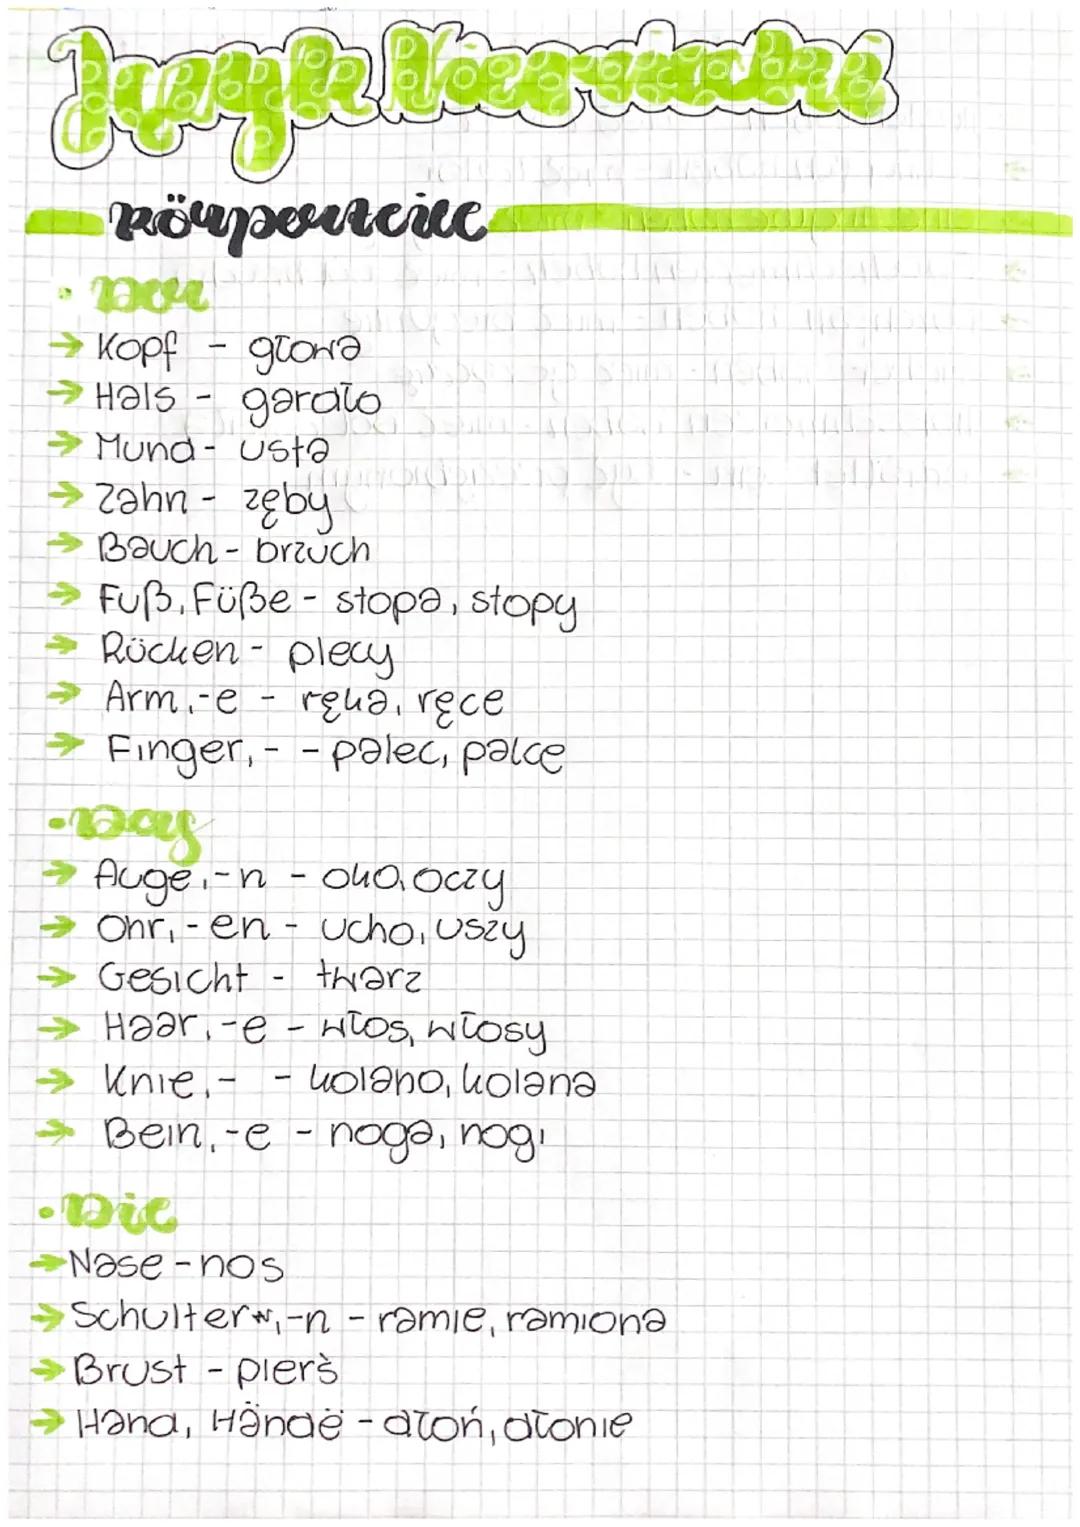 Język Niemiecki
Körperteile
• Der
→ Kopf - głowa
→ Hals - gardło
→ Mund - usta
→ Zahn - zęby
→ Bauch - brzuch
→ Fuß, Füße - stopa, stopy
→ Rücken - plecy
→ Arm, -e - ręka, ręce
→ Finger, - - palec, palce
• Das
→ Auge, -n - oko, oczy
→ Ohr, -en - ucho, uszy
→ Gesicht - twarz
→ Haar, -e - włos, włosy
→ Knie, - - kolano, kolana
→ Bein, -e - noga, nogi
• Die
→ Nase - nos
→ Schulter, -n - ramie, ramiona
→ Brust - pierś
→ Hand, Hände - dłoń, dłonie